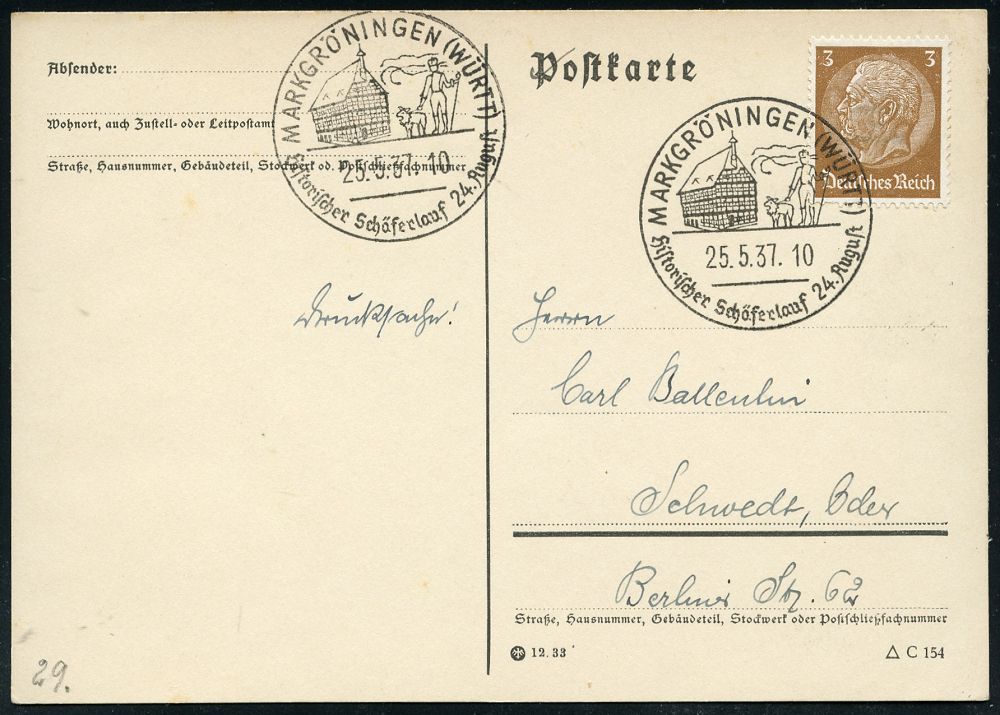 Absender:
Wohnort, auch Zustell- oder Leitpostamt
Straße, Hausnummer, Gebäudeteil, Stockwerk od. Postschließfachnummer
MARKGRÖNINGEN (WÜRTT)
25.5.37. 10
Historischer Schäferlauf 24. August
Drucksache!
29.
Postkarte
3 3
Deutsches Reich
MARKGRÖNINGEN (WÜRTT)
25.5.37. 10
Historischer Schäferlauf 24. August
Herrn
Carl Ballentin
Schwedt, Oder
Berliner Str. 62
Straße, Hausnummer, Gebäudeteil, Stockwerk oder Postschließfachnummer
12.33
C 154